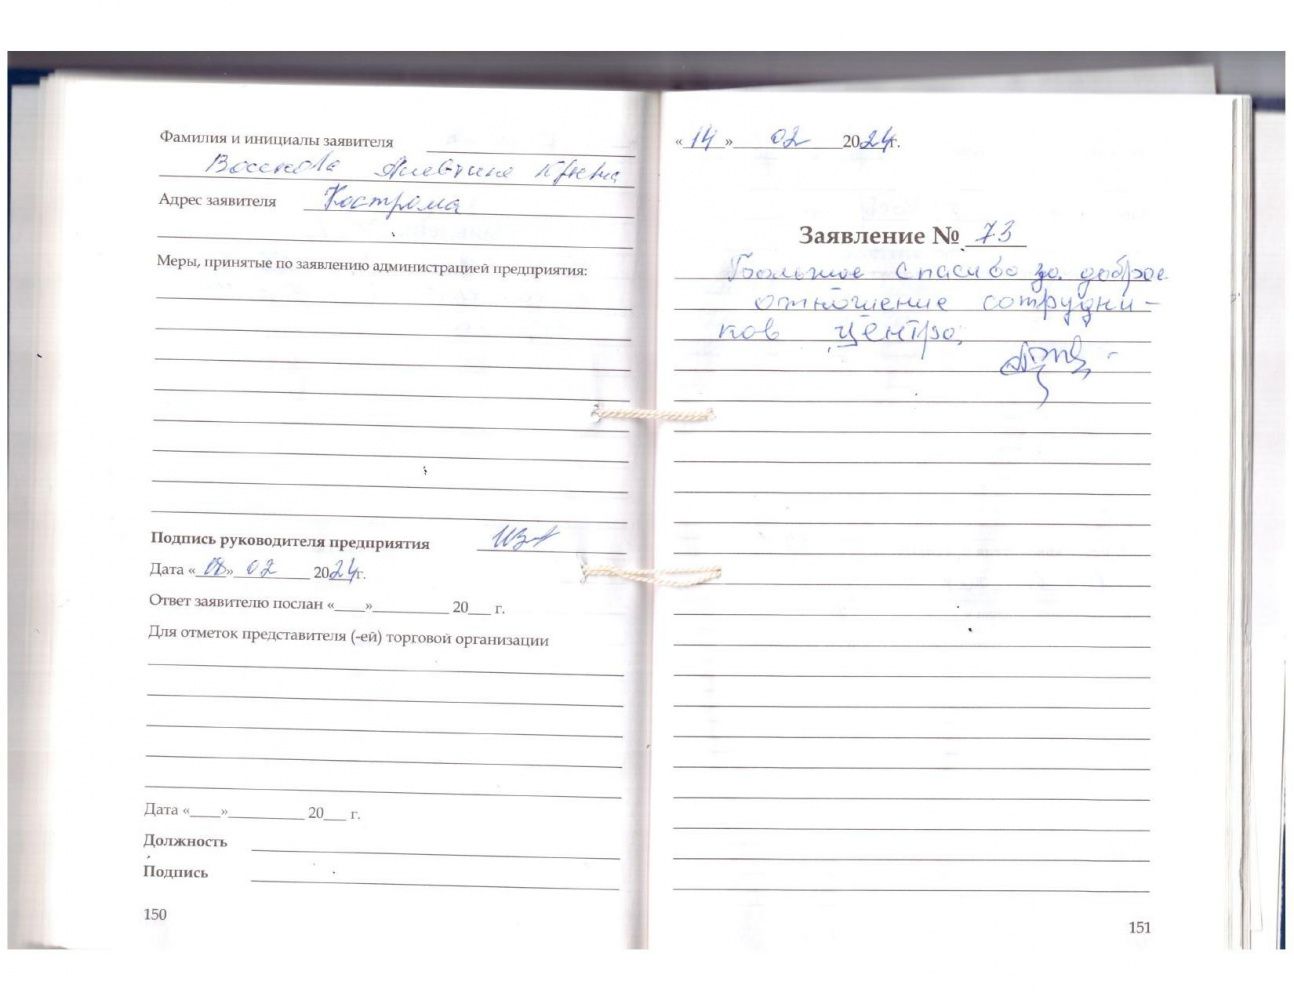 Фамилия и инициалы заявителя
Адрес заявителя Кострома
Меры, принятые по заявлению администрацией предприятия:
Подпись руководителя предприятия
Дата «08» 02 2024г.
Ответ заявителю послан «____»__________ 20___ г.
Для отметок представителя (-ей) торговой организации
Дата «____»__________ 20___ г.
Должность
Подпись
150
«14» 02 2024г.
Заявление № 73
Большое спасибо за доброе
отношение сотрудни-
ков центра.
151